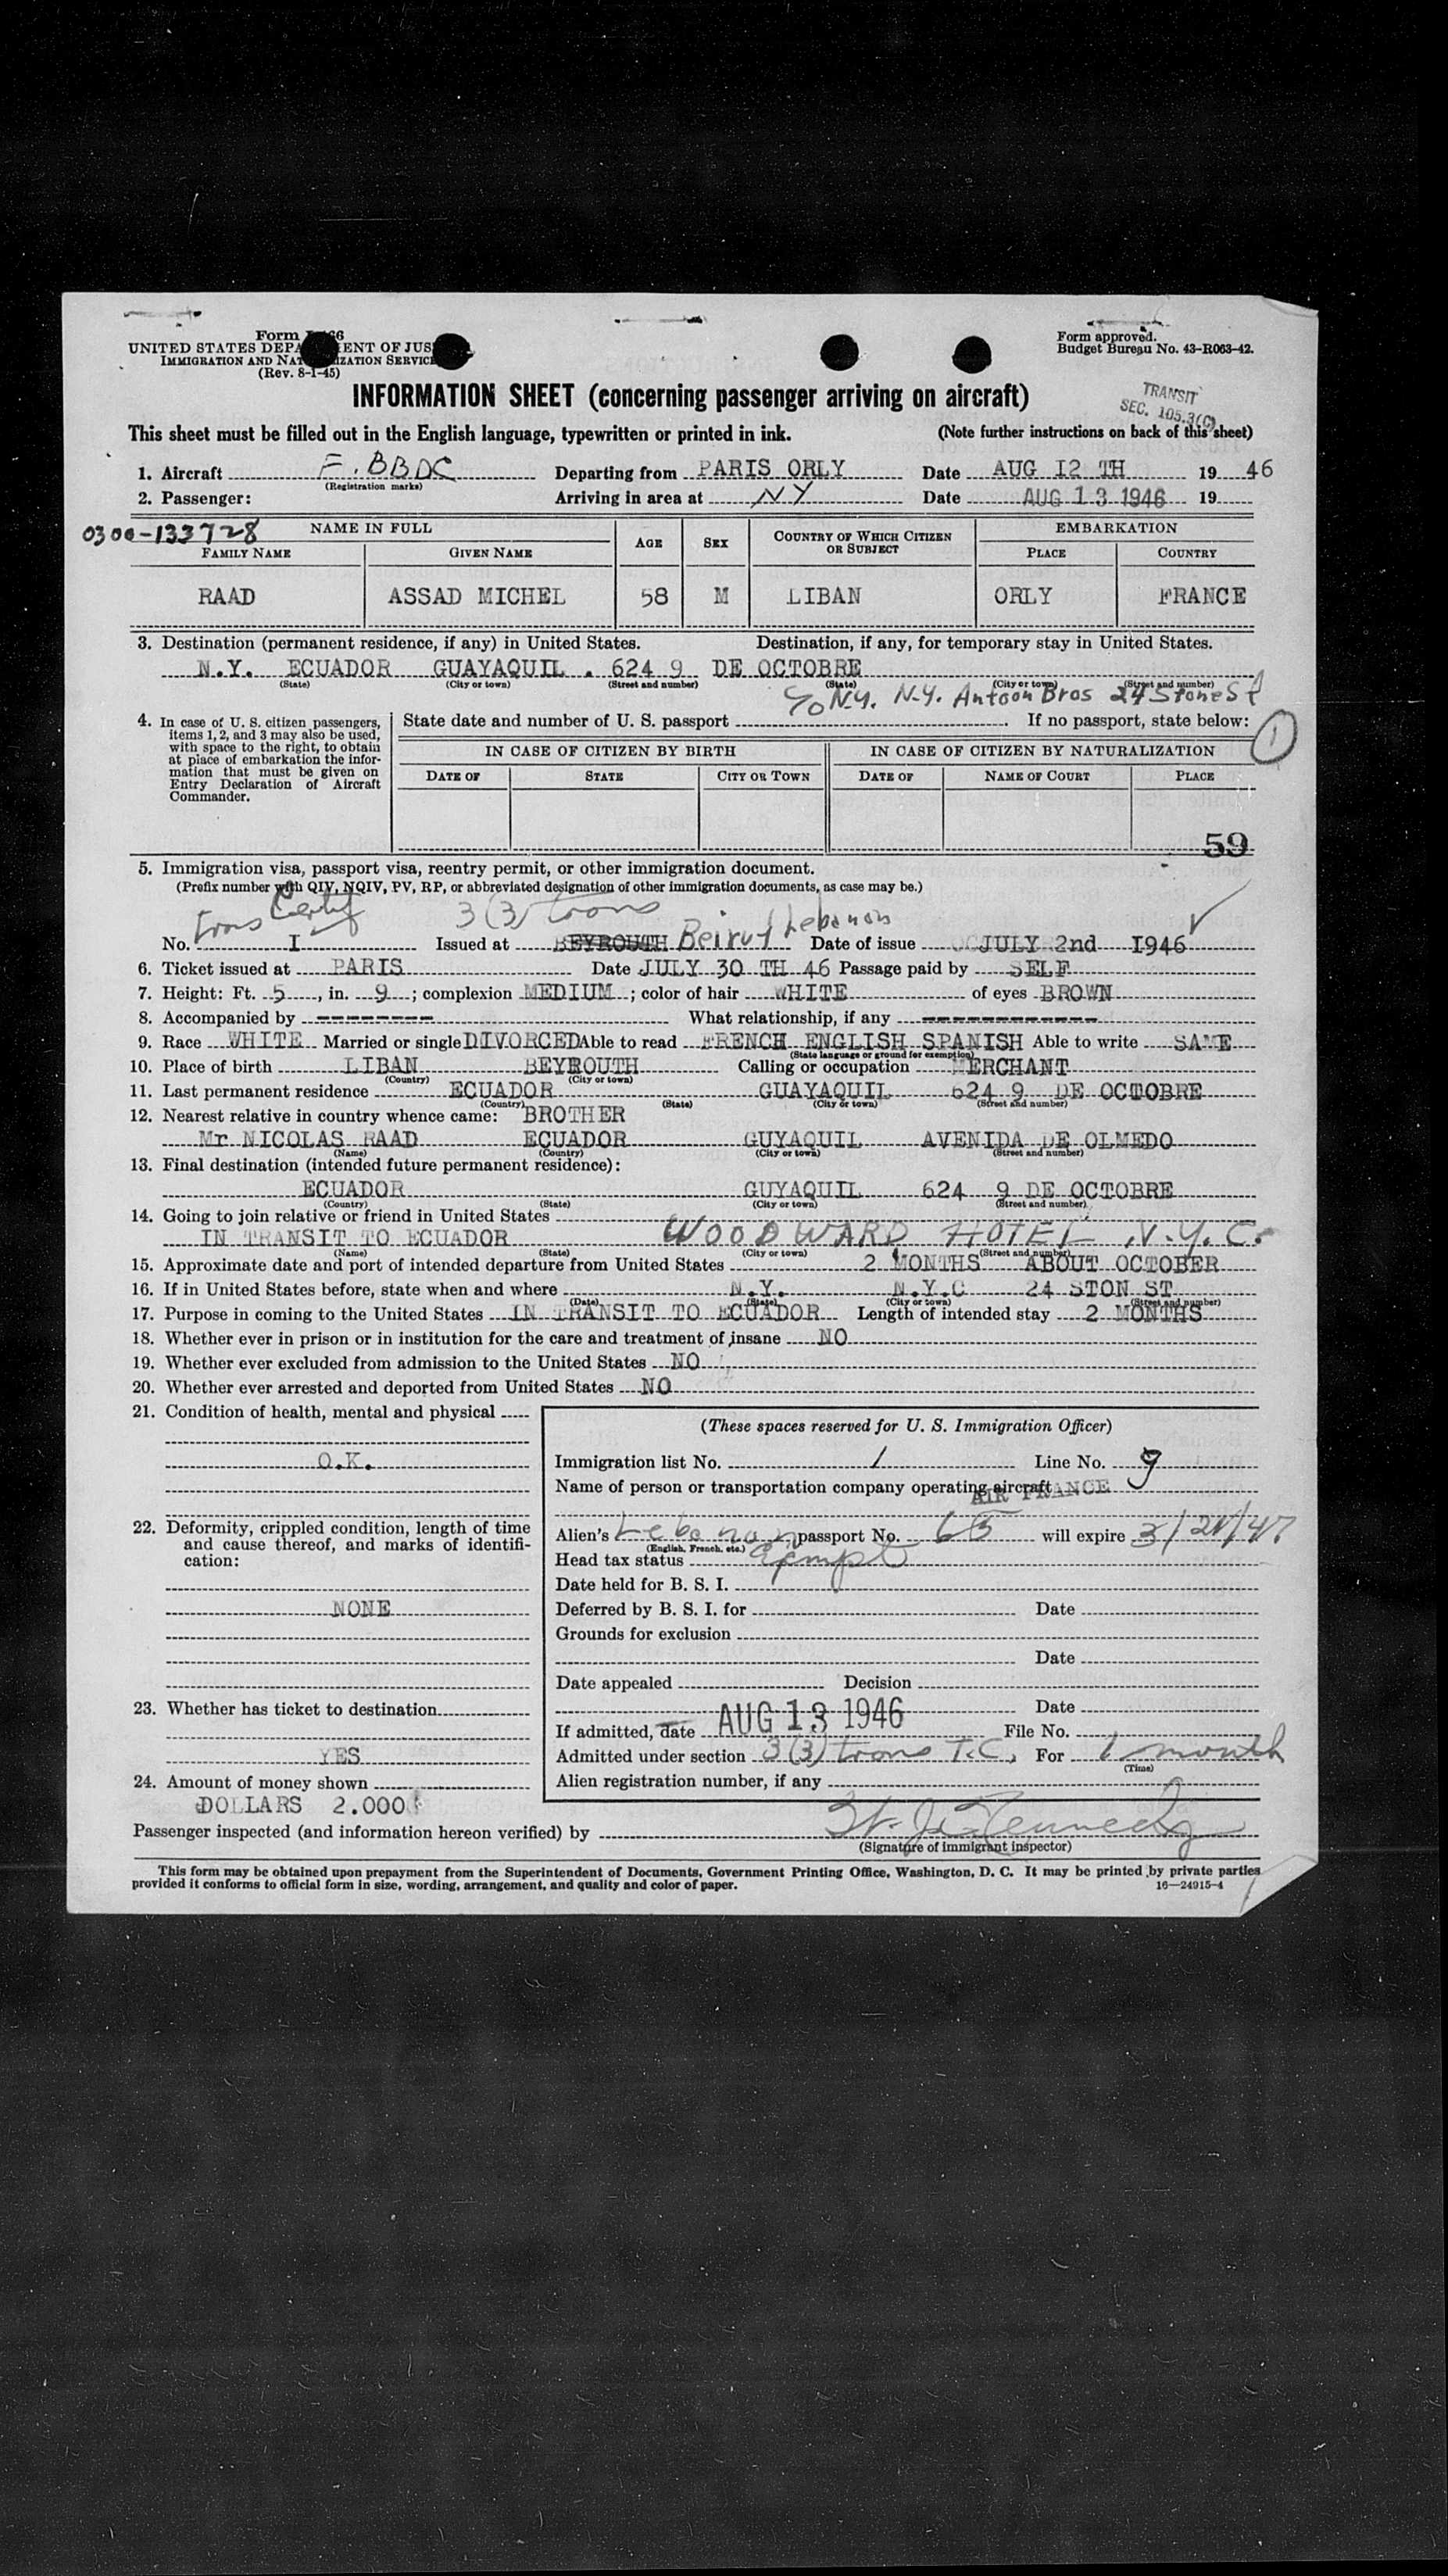 Form I-466
UNITED STATES DEPARTMENT OF JUSTICE
IMMIGRATION AND NATURALIZATION SERVICE
(Rev. 8-1-45)
Form approved.
Budget Bureau No. 43-R063-42.
INFORMATION SHEET (concerning passenger arriving on aircraft)
TRANSIT
SEC. 105.3(C)
This sheet must be filled out in the English language, typewritten or printed in ink. (Note further instructions on back of this sheet)
1. Aircraft F.BBDC Departing from PARIS ORLY Date AUG I2 TH 19 46
(Registration marks)
2. Passenger: Arriving in area at NY Date AUG 13 1946 19
0300-133728 NAME IN FULL AGE SEX COUNTRY OF WHICH CITIZEN OR SUBJECT EMBARKATION
FAMILY NAME GIVEN NAME PLACE COUNTRY
RAAD ASSAD MICHEL 58 M LIBAN ORLY FRANCE
3. Destination (permanent residence, if any) in United States. Destination, if any, for temporary stay in United States.
N.Y. ECUADOR GUAYAQUIL . 624 9 DE OCTOBRE
(State) (City or town) (Street and number) (State) (City or town) (Street and number)
c/o N.Y. N.Y. Antoon Bros 24 Stone St
4. In case of U. S. citizen passengers, items 1, 2, and 3 may also be used, with space to the right, to obtain at place of embarkation the information that must be given on Entry Declaration of Aircraft Commander.
State date and number of U. S. passport If no passport, state below:
1
IN CASE OF CITIZEN BY BIRTH IN CASE OF CITIZEN BY NATURALIZATION
DATE OF STATE CITY OR TOWN DATE OF NAME OF COURT PLACE
59
5. Immigration visa, passport visa, reentry permit, or other immigration document.
(Prefix number with QIV, NQIV, PV, RP, or abbreviated designation of other immigration documents, as case may be.)
Trans Certif 3(3) trans
No. I Issued at BEYROUTH Beirut Lebanon Date of issue JULY 2nd I946
6. Ticket issued at PARIS Date JULY 30 TH 46 Passage paid by SELF
7. Height: Ft. 5, in. 9; complexion MEDIUM; color of hair WHITE of eyes BROWN
8. Accompanied by -------- What relationship, if any ------------
9. Race WHITE Married or single DIVORCED Able to read FRENCH ENGLISH SPANISH Able to write SAME
(State language or ground for exemption)
10. Place of birth LIBAN BEYROUTH Calling or occupation MERCHANT
(Country) (City or town)
11. Last permanent residence ECUADOR GUAYAQUIL 624 9 DE OCTOBRE
(Country) (State) (City or town) (Street and number)
12. Nearest relative in country whence came: BROTHER
Mr NICOLAS RAAD ECUADOR GUYAQUIL AVENIDA DE OLMEDO
(Name) (Country) (City or town) (Street and number)
13. Final destination (intended future permanent residence):
ECUADOR GUYAQUIL 624 9 DE OCTOBRE
(Country) (State) (City or town) (Street and number)
14. Going to join relative or friend in United States
IN TRANSIT TO ECUADOR WOODWARD HOTEL N.Y.C.
(Name) (State) (City or town) (Street and number)
15. Approximate date and port of intended departure from United States 2 MONTHS ABOUT OCTOBER
16. If in United States before, state when and where N.Y. N.Y.C 24 STON ST
(Date) (State) (City or town) (Street and number)
17. Purpose in coming to the United States IN TRANSIT TO ECUADOR Length of intended stay 2 MONTHS
18. Whether ever in prison or in institution for the care and treatment of insane NO
19. Whether ever excluded from admission to the United States NO
20. Whether ever arrested and deported from United States NO
21. Condition of health, mental and physical
O.K.
22. Deformity, crippled condition, length of time and cause thereof, and marks of identification:
NONE
23. Whether has ticket to destination
YES
24. Amount of money shown
DOLLARS 2.000
(These spaces reserved for U. S. Immigration Officer)
Immigration list No. 1 Line No. 9
Name of person or transportation company operating aircraft AIR FRANCE
Alien's Lebanon passport No. 65 will expire 3/21/47
(English, French, etc.)
Head tax status Exempt
Date held for B. S. I.
Deferred by B. S. I. for Date
Grounds for exclusion
Date
Date appealed Decision
Date
If admitted, date AUG 13 1946 File No.
Admitted under section 3(3) trans T.C. For 1 month
(Time)
Alien registration number, if any
Passenger inspected (and information hereon verified) by
(Signature of immigrant inspector)
This form may be obtained upon prepayment from the Superintendent of Documents, Government Printing Office, Washington, D. C. It may be printed by private parties
provided it conforms to official form in size, wording, arrangement, and quality and color of paper. 16—24915-4